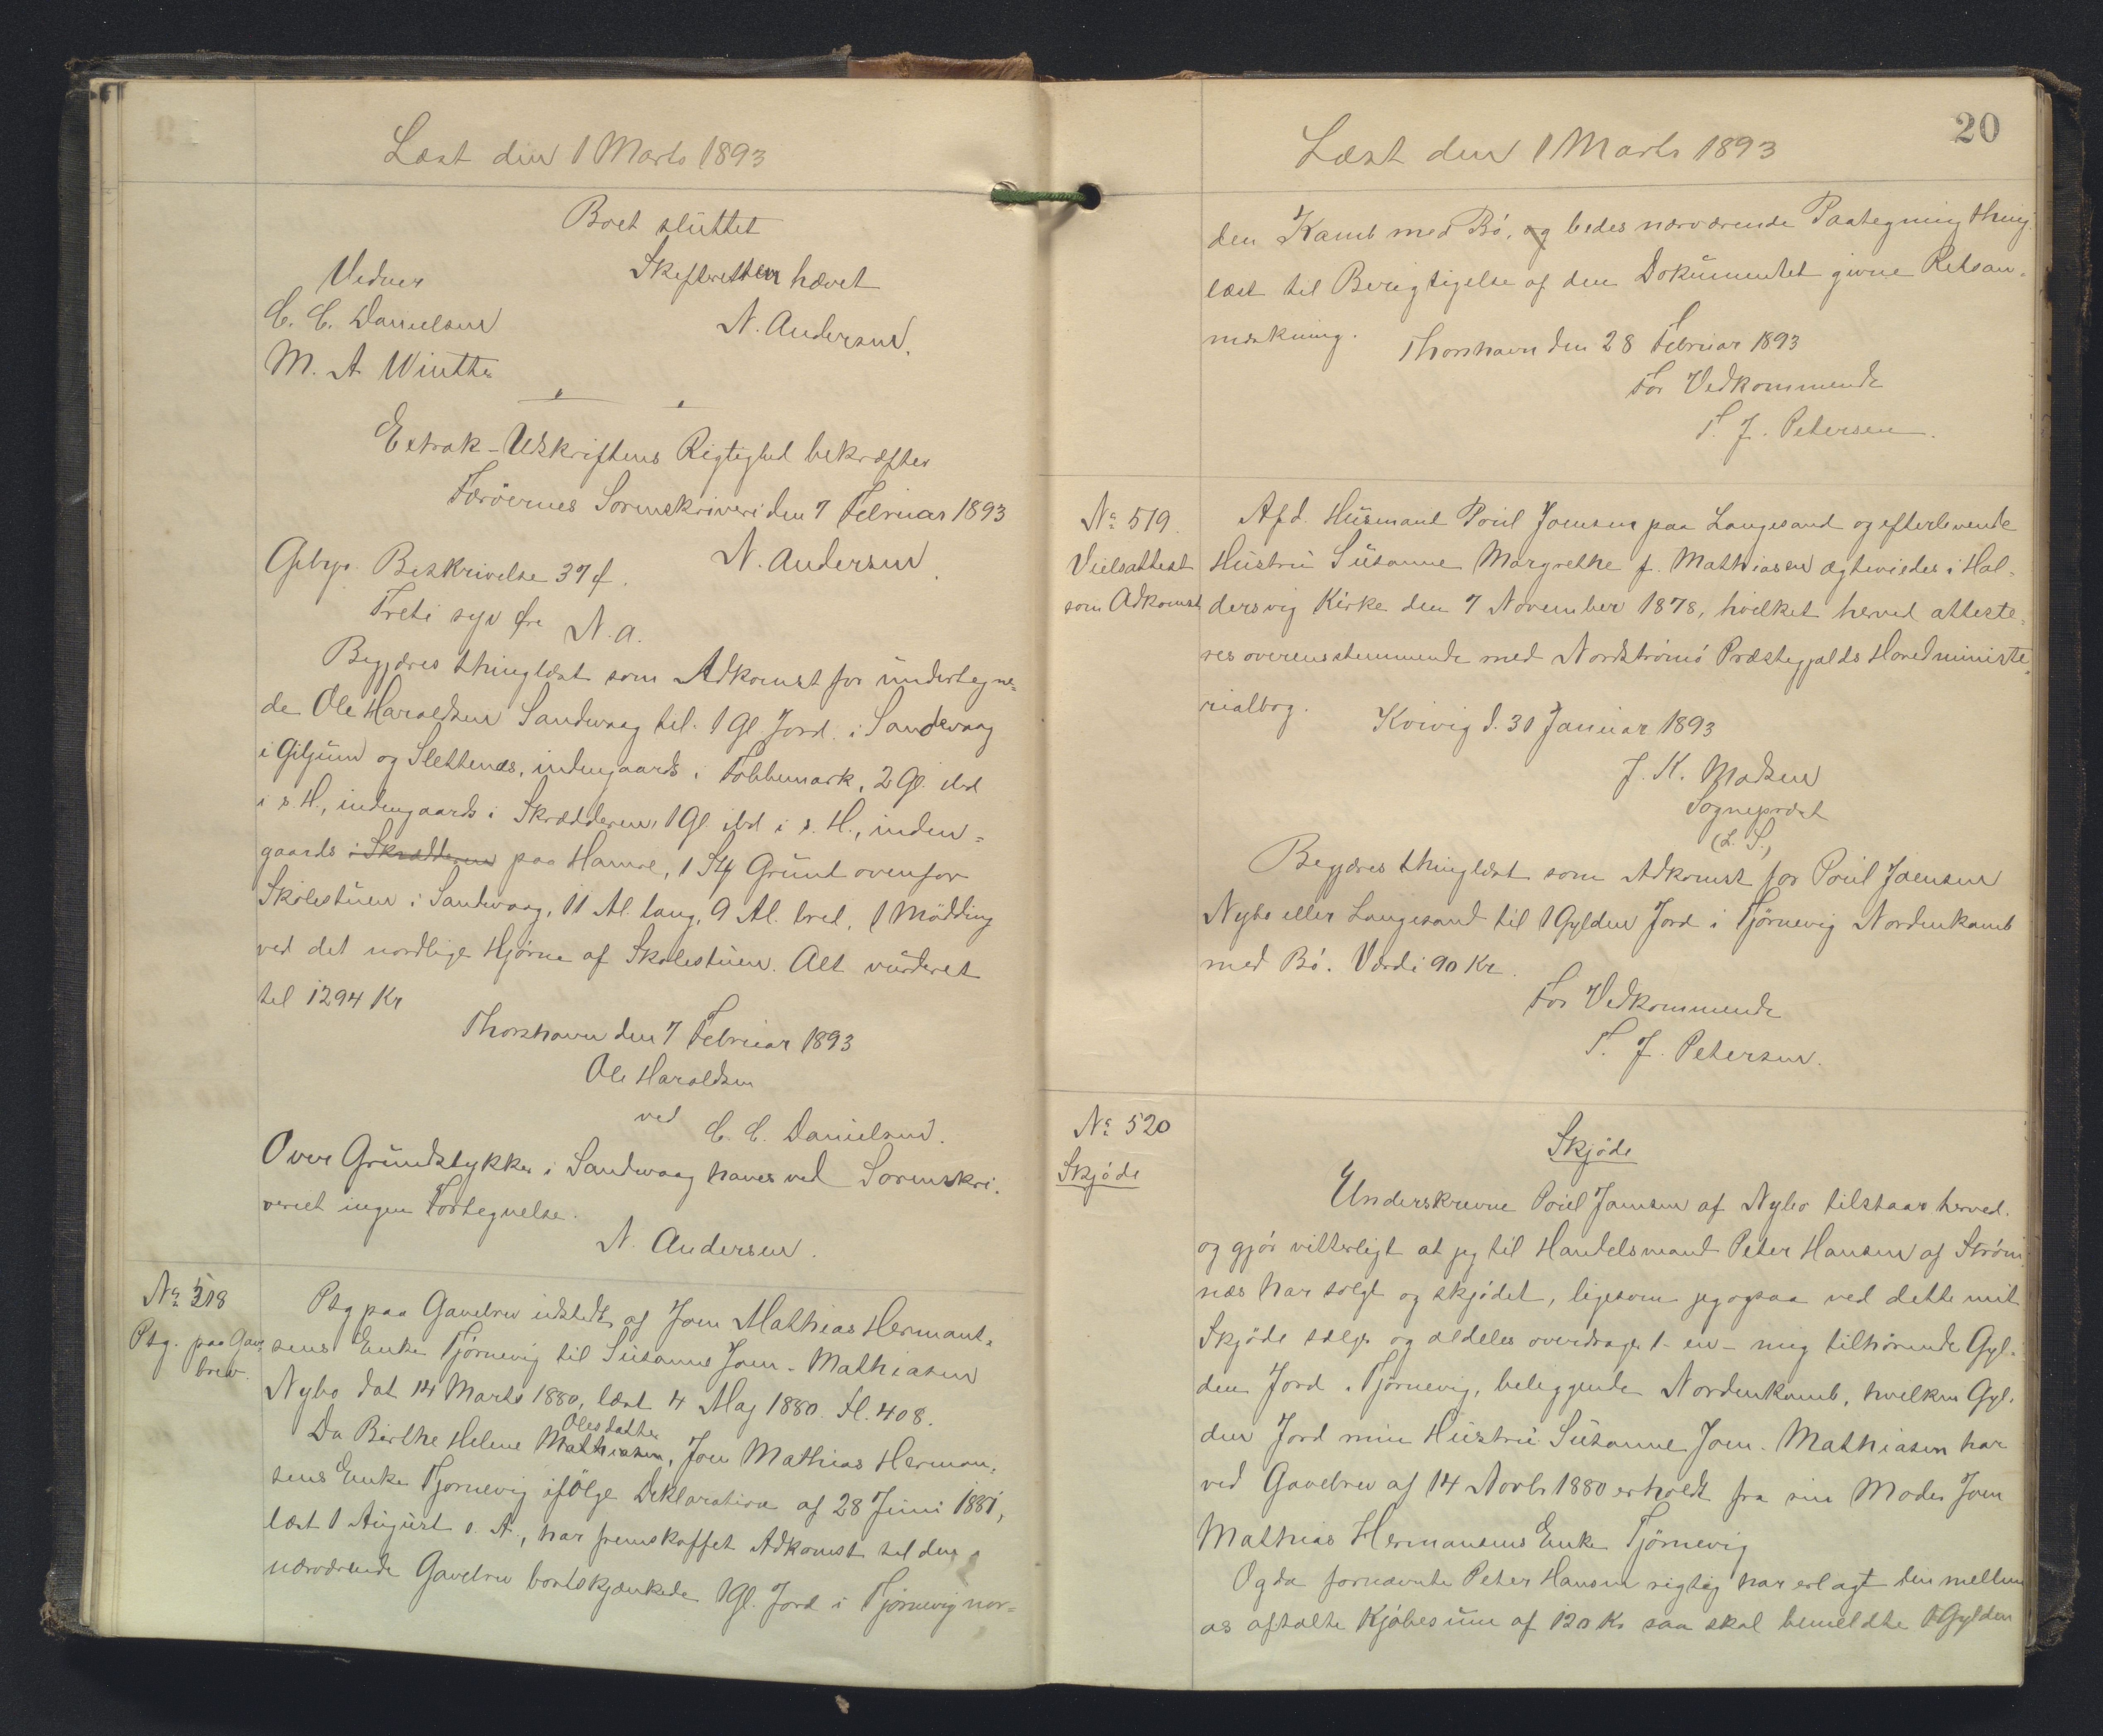 Læst den 1 Marts 1893
Boet sluttet
Skifteretten hævet
Vidner
C. C. Danielsen
N. Andersen.
M. A. Winther
Extrak-Udskriftens Rigtighed bekræfter
Færöernes Sorenskriveri den 7 Februar 1893
N. Andersen
Gebyr. Beskrivelse 37 ø.
Treti syv Øre N. A.
Begjæres thinglæst som Adkomst for undertegne-
de Ole Haraldsen Sandvaag til. 1 Gl Jord i Sandevaag
i Giljum og Slettenæs, indengaards i Tobbemark, 2 Gl. ibd
i s. H., indengaards i Skrædderen, 1 Gl. ibd i s. H., inden-
gaards i Skrædderen paa Hamre, 1 Stk Grund ovenfor
Skolestuen i Sandvaag, 11 Al. lang, 9 Al. bred, 1 Mödding
ved det nordlige Hjörne af Skolestuen. Alt vurderet
til 1294 Kr
Thorshavn den 7 Februar 1893
Ole Haraldsen
ved C. C. Danielsen.
Over Grundstykker i Sandvaag haves ved Sorenskri-
veriet ingen Fortegnelse.
N. Andersen.
No. 518
Ptg. paa Gave
brev.
Ptg paa Gavebrev udstedt af Joen Mathias Hermand-
sens Enke Tjörnevig til Susanne Joen-Mathiasen
Nybo dat 14 Marts 1880, læst 4 Maj 1880. fl. 408.
Da Birthe Helene Mathiasen, Olesdatter Joen Mathias Herman-
sens Enke Tjörnevig ifölge Deklaration af 28 Juni 1881,
læst 1 August s. A., har fremskaffet Adkomst til den ved
nærværende Gavebrev bortskjænkede 1 Gl. Jord i Tjörnevig nor-
20
Læst den 1 Marts 1893
den Kamb med Bö, og bedes nærværende Paategning thing-
læst til Berigtigelse af den Dokumentet givne Retsan-
mærkning.
Thorshavn den 28 Februar 1893
For Vedkommende
T. J. Petersen.
No. 519.
Vielsattest
som Adkomst
Afd. Husmand Poul Joensen paa Langesand og efterlevende
Hustru Susanne Margrethe f. Mathiasen ægteviedes i Hal-
dersvig Kirke den 7 November 1878, hvilket herved atteste-
res overensstemmende med Nordströmö Præstegjælds Hovedministe-
rialbog.
Kvivig d. 30 Januar 1893
J. K. Madsen
Sognepræst
(L. S.)
Begjæres thinglæst som Adkomst for Poul Joensen
Nybo eller Langesand til 1 Gylden Jord i Tjörnevig Nordenkamb
med Bö. Værdi 90 Kr.
For Vedkommende
T. J. Petersen.
No. 520
Skjöde
Skjöde
Underskrevne Poul Joensen af Nybo tilstaar herved
og gjör vitterligt at jeg til Handelsmand Peter Hansen af Ström-
næs har solgt og skjödet, ligesom jeg ogsaa ved dette mit
Skjöde sælger og aldeles overdrager 1 - en - mig tilhörende Gyl-
den Jord i Tjörnevig, beliggende Nordenkamb, hvilken Gyl-
den Jord min Hustru Susanne Joen-Mathiasen har
ved Gavebrev af 14 Novbr 1880 erholdt fra sin Moder Joen
Mathias Hermansens Enke Tjörnevig
Og da fornævnte Peter Hansen rigtig har erlagt den mellem
os aftalte Kjöbesum af 120 Kr saa skal bemeldte 1 Gylden